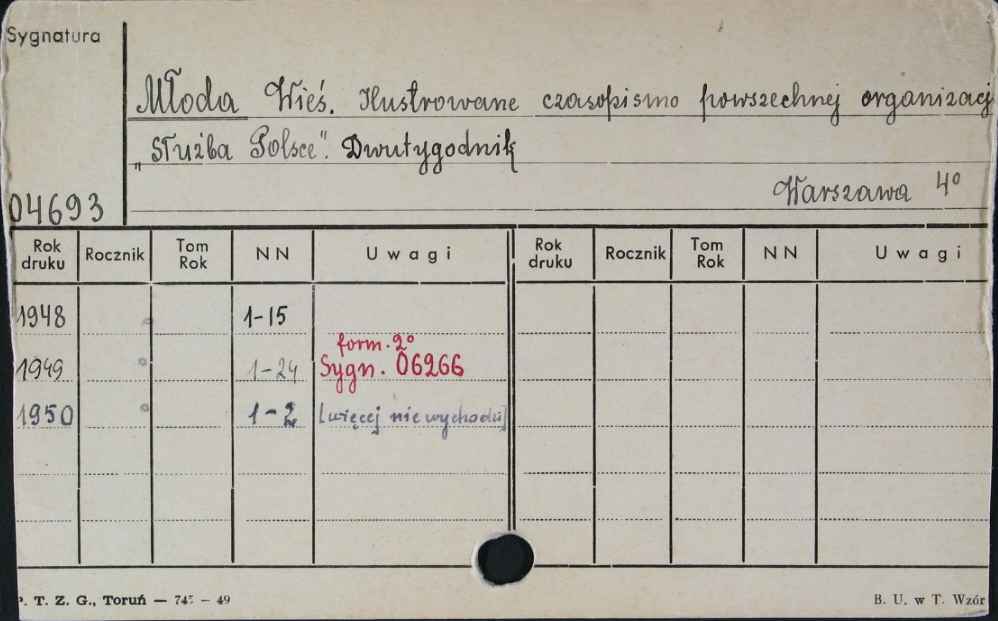 Sygnatura
Młoda Wieś. Ilustrowane czasopismo powszechnej organizacj
„Służba Polsce". Dwutygodnik
Warszawa 4°
04693
Rok druku Rocznik Tom Rok NN Uwagi Rok druku Rocznik Tom Rok NN Uwagi
1948 1-15
form. 2°
1949 1-24 Sygn. 06266
1950 1-2 [więcej nie wychodzi]
P. T. Z. G., Toruń — 745 — 49
B. U. w T. Wzór